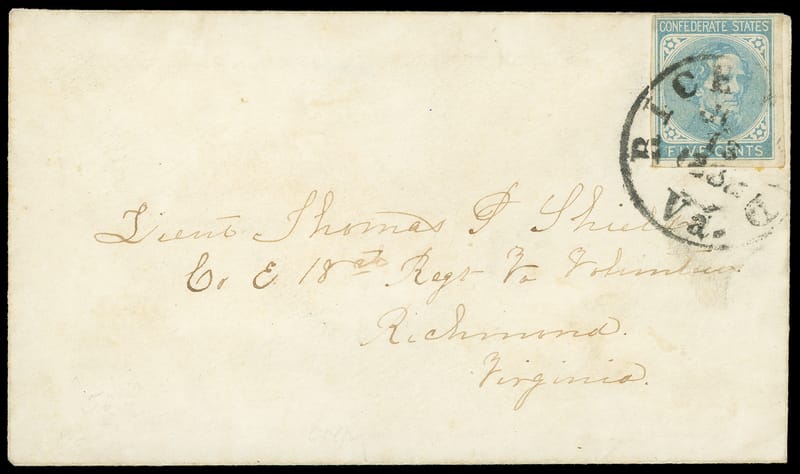 CONFEDERATE STATES
FIVE CENTS
RICH
Va.
Lieut Thomas P
Co E 18th Regt Va Volunteers
Richmond.
Virginia.